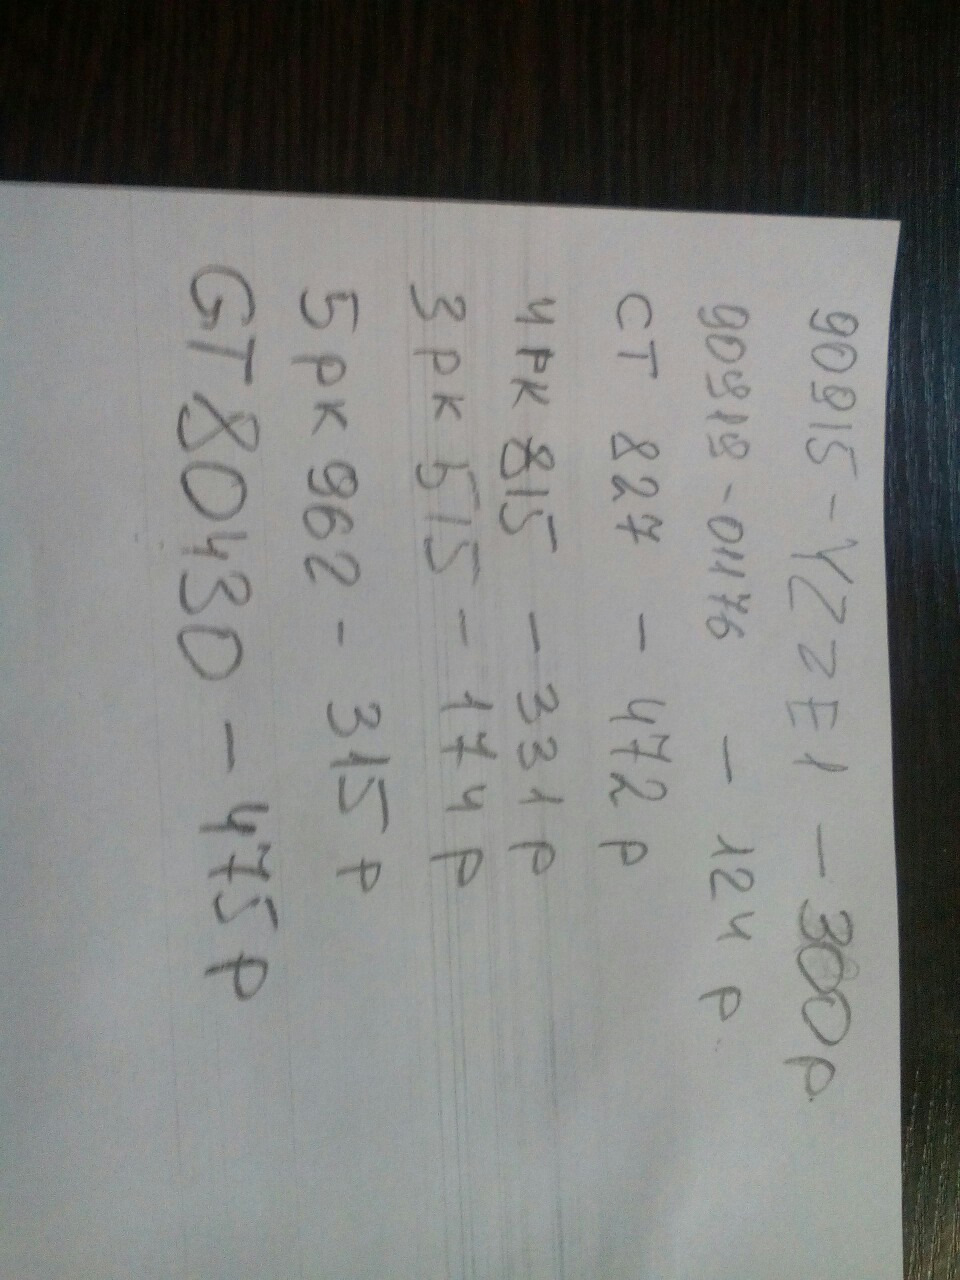 90915-YZZE1 - 300р.
90919-01176 - 124р.
СТ 827 - 472р
4рк 815 - 331р
3рк 515 - 174р
5рк 962 - 315р
GT 80430 - 475р